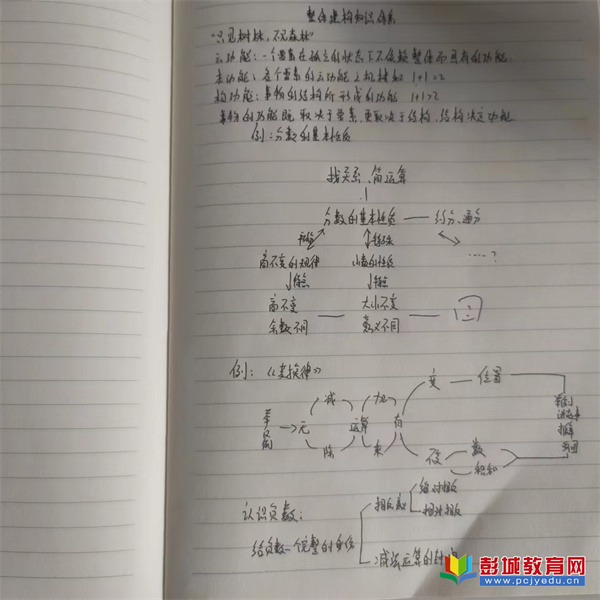 整体建构知识体系
"只见树林,不见森林"
元功能:一个要素在孤立的状态下不依赖整体而具有的功能
本功能:各个要素的元功能之机械和 1+1=2
构功能:事物的结构所形成的功能 1+1>2
事物的功能既取决于要素,更取决于结构,结构决定功能
例:分数的基本性质
找关系、简运算
分数的基本性质 — 约分、通分
商不变的规律 小数的性质 ……?
商不变 大小不变
余数不同 意义不同
例:《交换律》
减 加 变 — 位置
→ 无 运算 有
除 乘 没 数
认识负数:
给负数一个完整的身份
减法运算的
彭城教育网
www.pcjyedu.cn